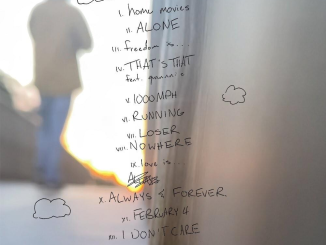 I. home movies
II. ALONE
III. freedom is...
IV. THAT'S THAT
feat.
V. 1000MPH
VI. RUNNING
VII. LOSER
VIII. NOWHERE
IX. love is...
X. ALWAYS & FOREVER
XI. FEBRUARY 4
XII. I DON'T CARE